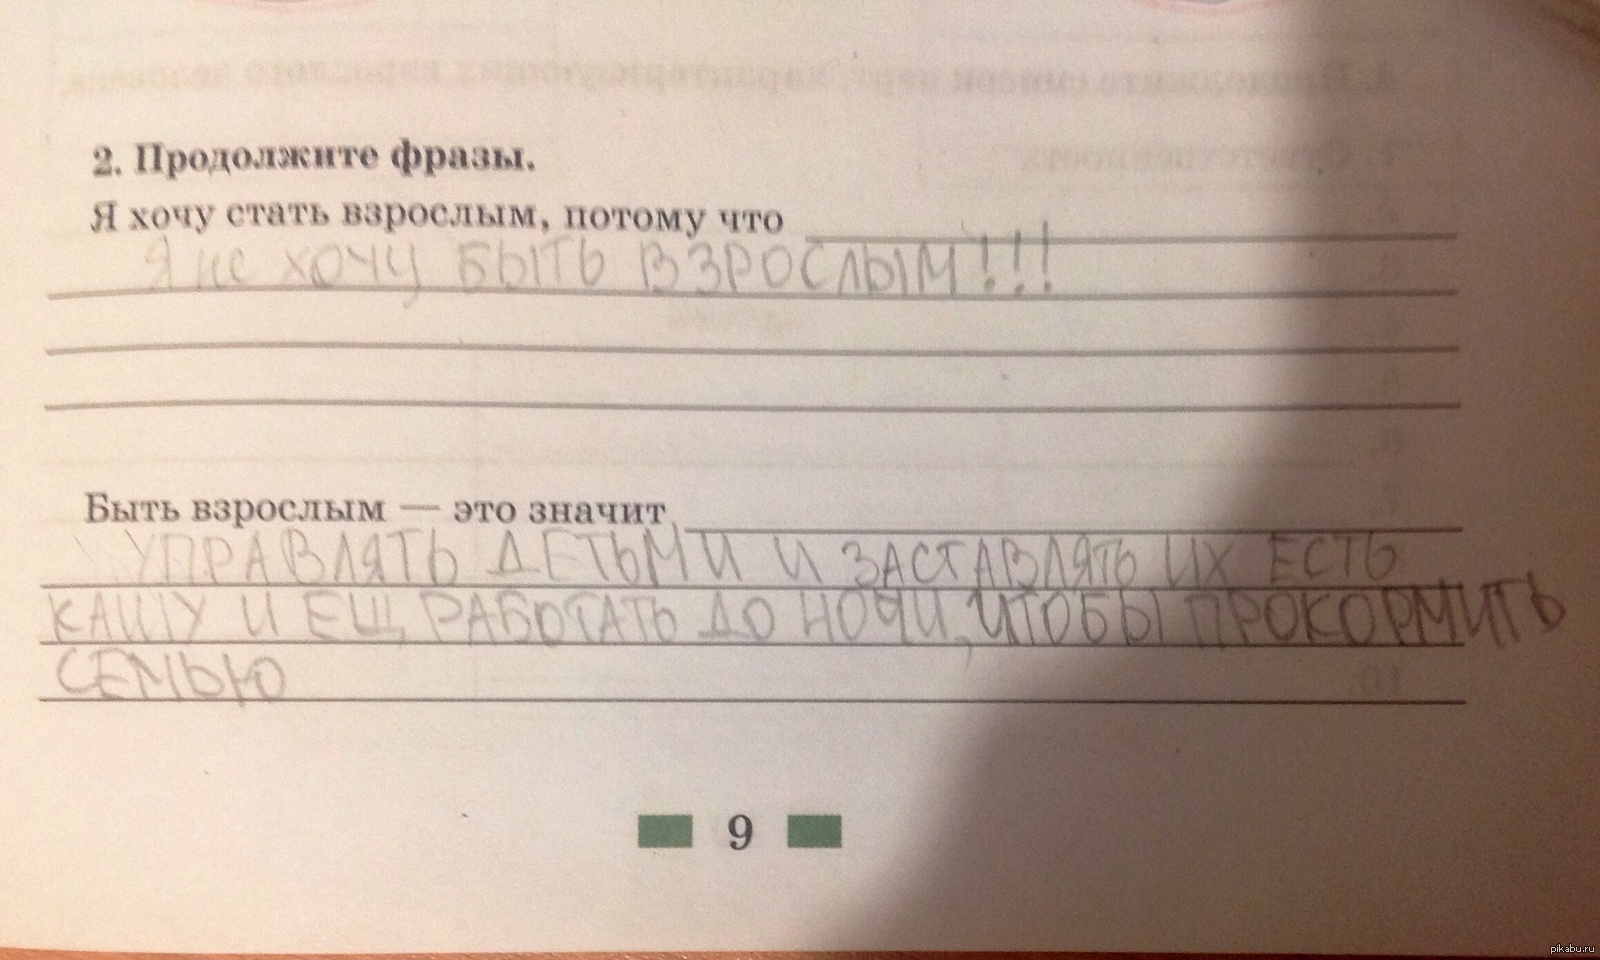 2. Продолжите фразы.
Я хочу стать взрослым, потому что
Я не ХОЧУ БЫТЬ ВЗРОСЛЫМ!!!
Быть взрослым — это значит
УПРАВЛЯТЬ ДЕТЬМИ И ЗАСТАВЛЯТЬ ИХ ЕСТЬ
КАШУ И ЕЩ РАБОТАТЬ ДО НОЧИ, ЧТОБЫ ПРОКОРМИТЬ
СЕМЬЮ
9
pikabu.ru